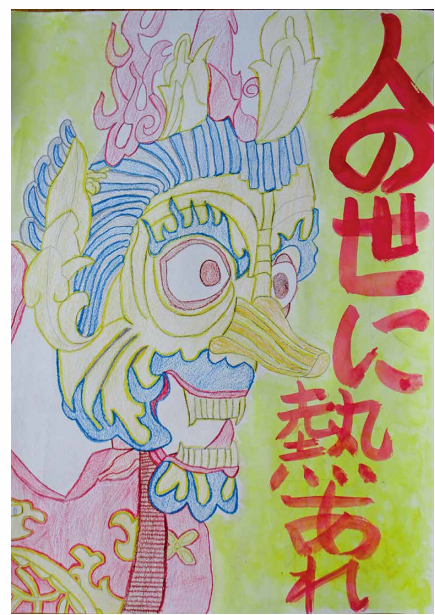 人の世に
熱あれ